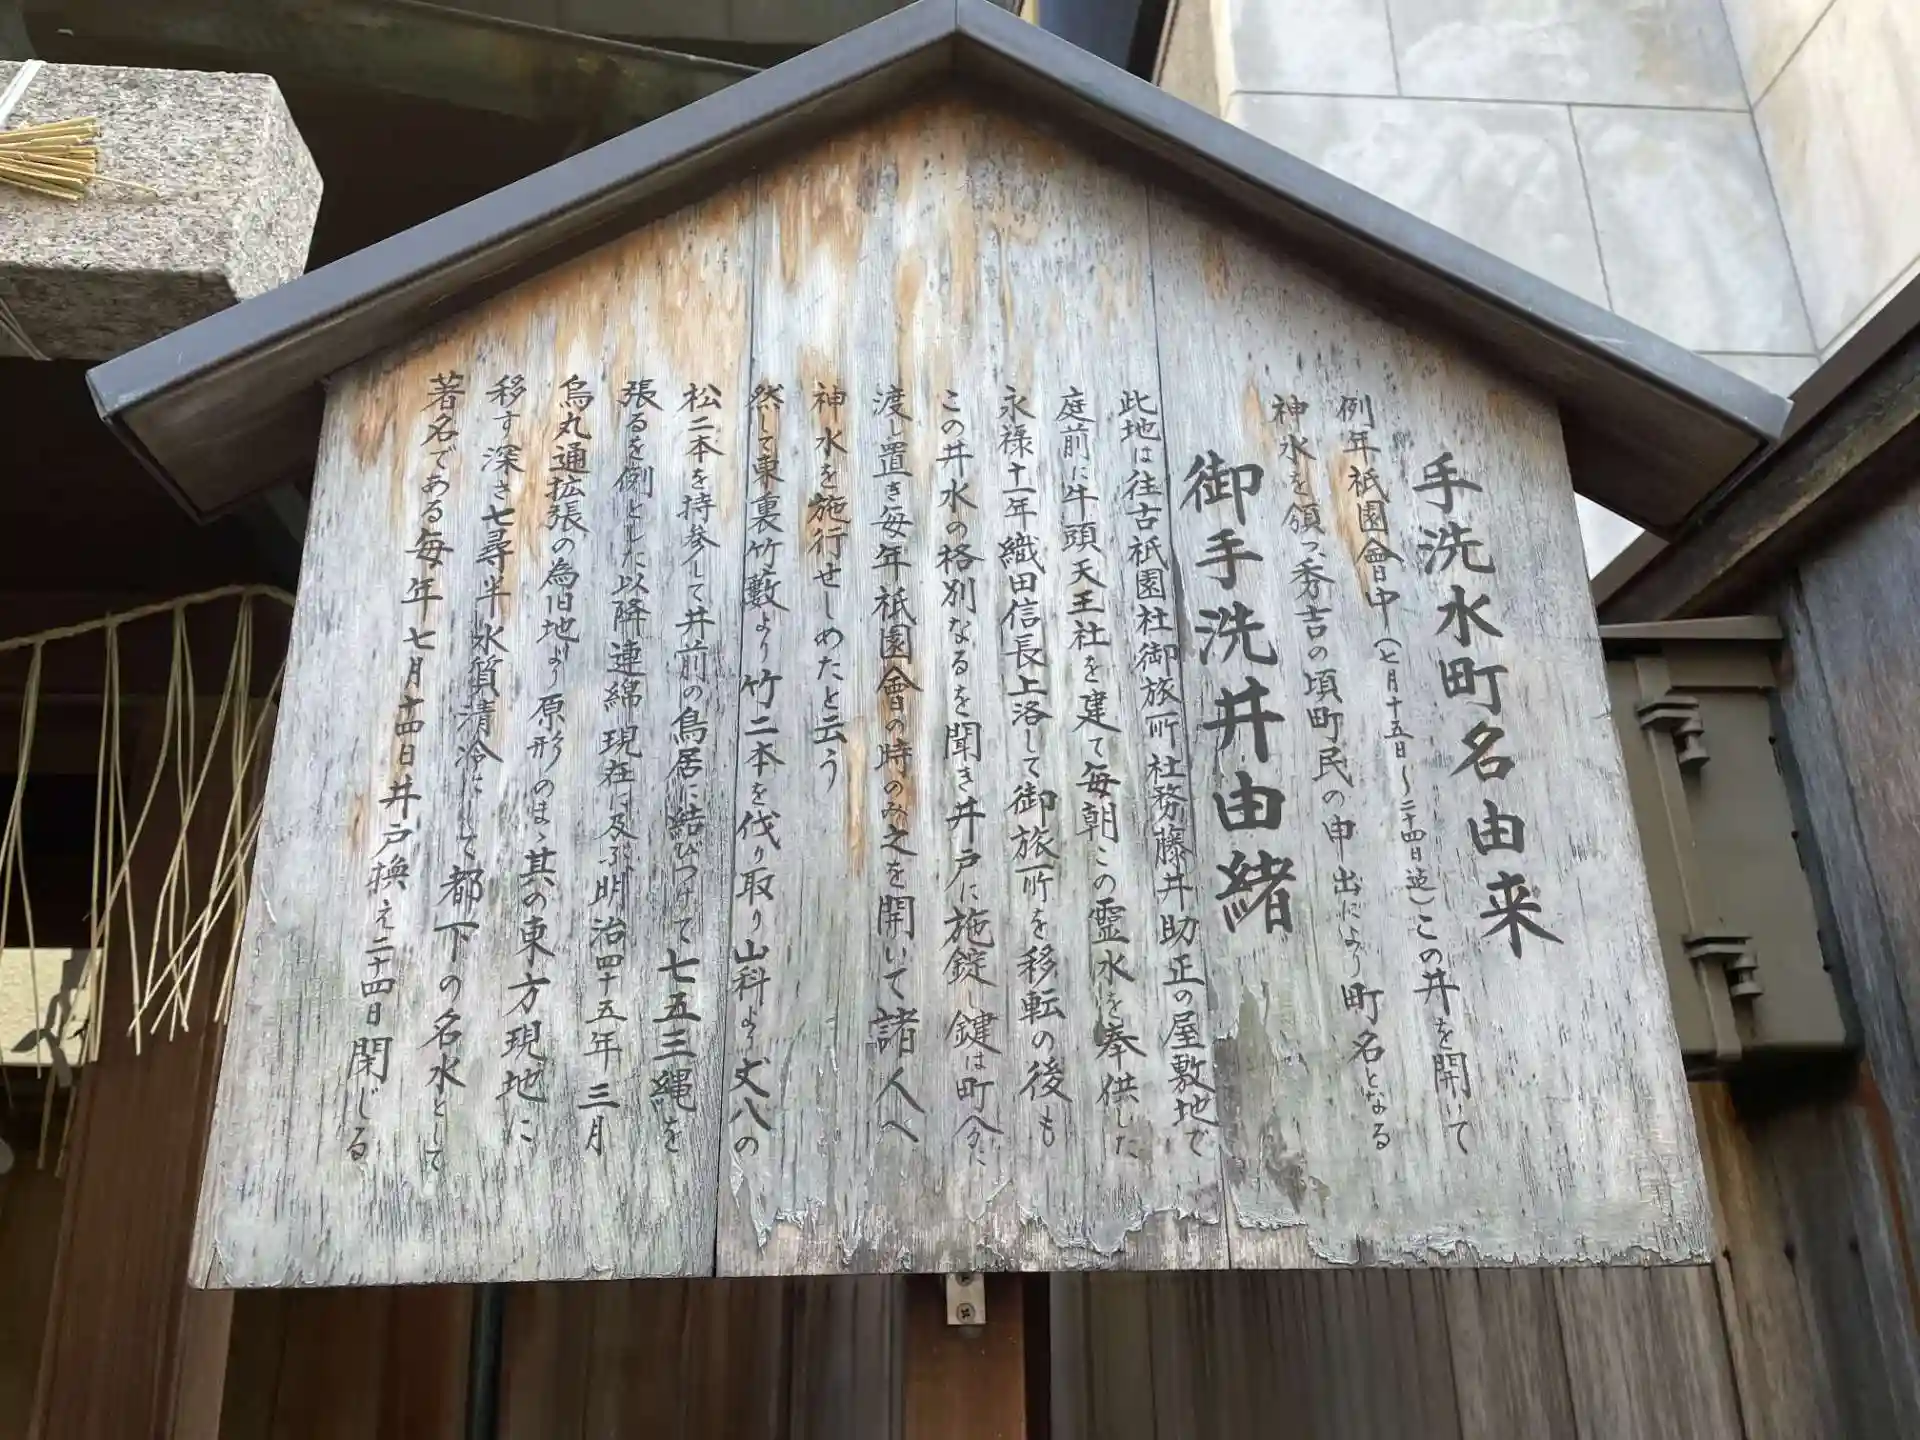 手洗水町名由来
例年祇園會中(七月十五日〜二十四日迠)この井を開いて
神水を領つ秀吉の頃町民の申出により町名となる
御手洗井由緒
此地は往古祇園社御旅所社務藤井助正の屋敷地で
庭前に牛頭天王社を建て毎朝この霊水を奉供した
永禄十一年織田信長上洛して御旅所を移転の後も
この井水の格別なるを聞き井戸に施錠し鍵は町分に
渡し置き毎年祇園會の時のみ之を開いて諸人へ
神水を施行せしめたと云う
然して東裏竹藪より竹二本を伐り取り山科より丈八の
松二本を持参して井前の鳥居に結びつけて七五三縄を
張るを例とした以降連綿現在に及ぶ明治四十五年三月
烏丸通拡張の為旧地より原形のまゝ其の東方現地に
移す深き七尋半水質清冷にして都下の名水として
著名である毎年七月十四日井戸換え二十四日閉じる